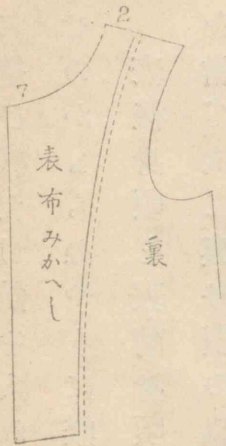 2
7
表布みかへし
裏